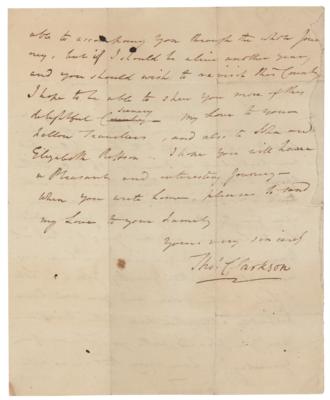 able to accompany you through the whole Jour
ney, but if I should be alive another year,
and you should wish to revisit this Country
I hope to be able to shew you more of this
scenery
delightful Country — My Love to your
fellow Travellers, and also to John and
Elizabeth — I hope you will have
a Pleasant and interesting Journey —
When you write home, please to send
my Love to your Family
Yours very sincerely
Thos. Clarkson